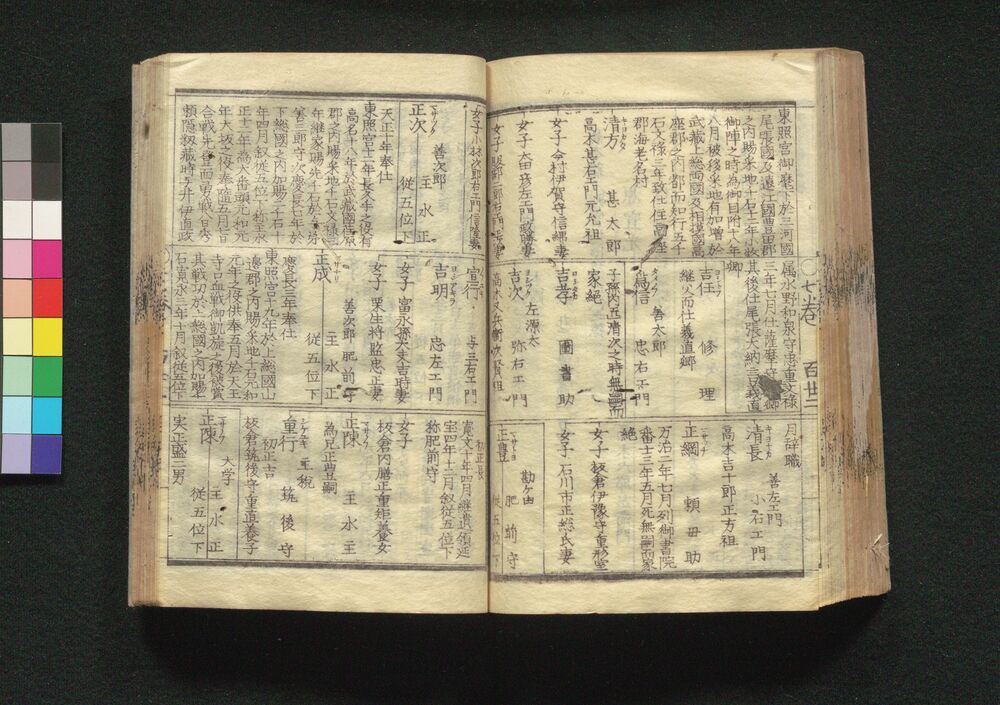 東照宮御麾下於三河國
尾張國及遠江國豊田郡
之内賜采地十石十二年小牧
御陣之時為御目附十八年
八月被移采地有加増於
武藏上総両國及相摸國高
座郡之内都而知行五千
石文禄三年致仕住高座
郡海老名村
清方 甚太郎
高木甚右エ門元允祖
女子今村伊賀守信縄妻
女子太田彦左エ門政勝妻
属水野和泉守忠重文禄
三年七月仕薩摩守 卿
其後仕尾張大納言義直卿
吉任 修理
継父而仕義直卿
為信 善太郎
忠右エ門
子孫内五清次之時無嗣而
家絶
吉孝 圖書助
吉次 左源太
弥右エ門
高木又兵衛次賢祖
月辞職
清長 善左エ門
小右エ門
高木吉十郎正方祖
正綱 頼母助
万治二年七月列御書院
番十三年五月死無嗣而家
絶
女子板倉伊豫守重形室
女子石川市正総氏妻
正豊 勘ケ由
肥前守
従五位下
七巻
百廿二
女子小林次郎右エ門信隆妻
正次 善次郎
主水正
従五位下
天正十年奉仕
東照宮十二年長久手之役有
高名十八年於武藏國荏原
郡之内賜采地千石文禄三
年継家賜先千石於次弟
善三郎守次慶長七年於
下総國之内加賜二千石十一
年四月叙従五位下称主水
正十二年為大番頭元和元
年大坂之役奉陸五月七日
合戦先登而勇戦首実
頼隠籾藏時与井伊直政
宣行 与三右エ門
吉明 忠左エ門
女子 富永孫大夫吉時妻
女子 栗生将監忠正妻
善次郎 肥前守
正成 主水正
従五位下
慶長三年奉仕
東照宮十九年於上総國山
邊郡之内賜采地千石元和
元年之役供奉五月於天王
寺口血戦御凱旋之後被賞
其戦功於上総國之内加賜千
石寛永三年十月叙従五位下
初正長
寛文十年四月継遺領延
宝四年十二月叙従五位下
称肥前守
女子
板倉内膳正重矩養女
正陳 主水正
為兄正豊嗣
重行 主税
筑後守
初正吉
板倉筑後守重直養子
正陳 大学
主水正
従五位下
実正盛二男